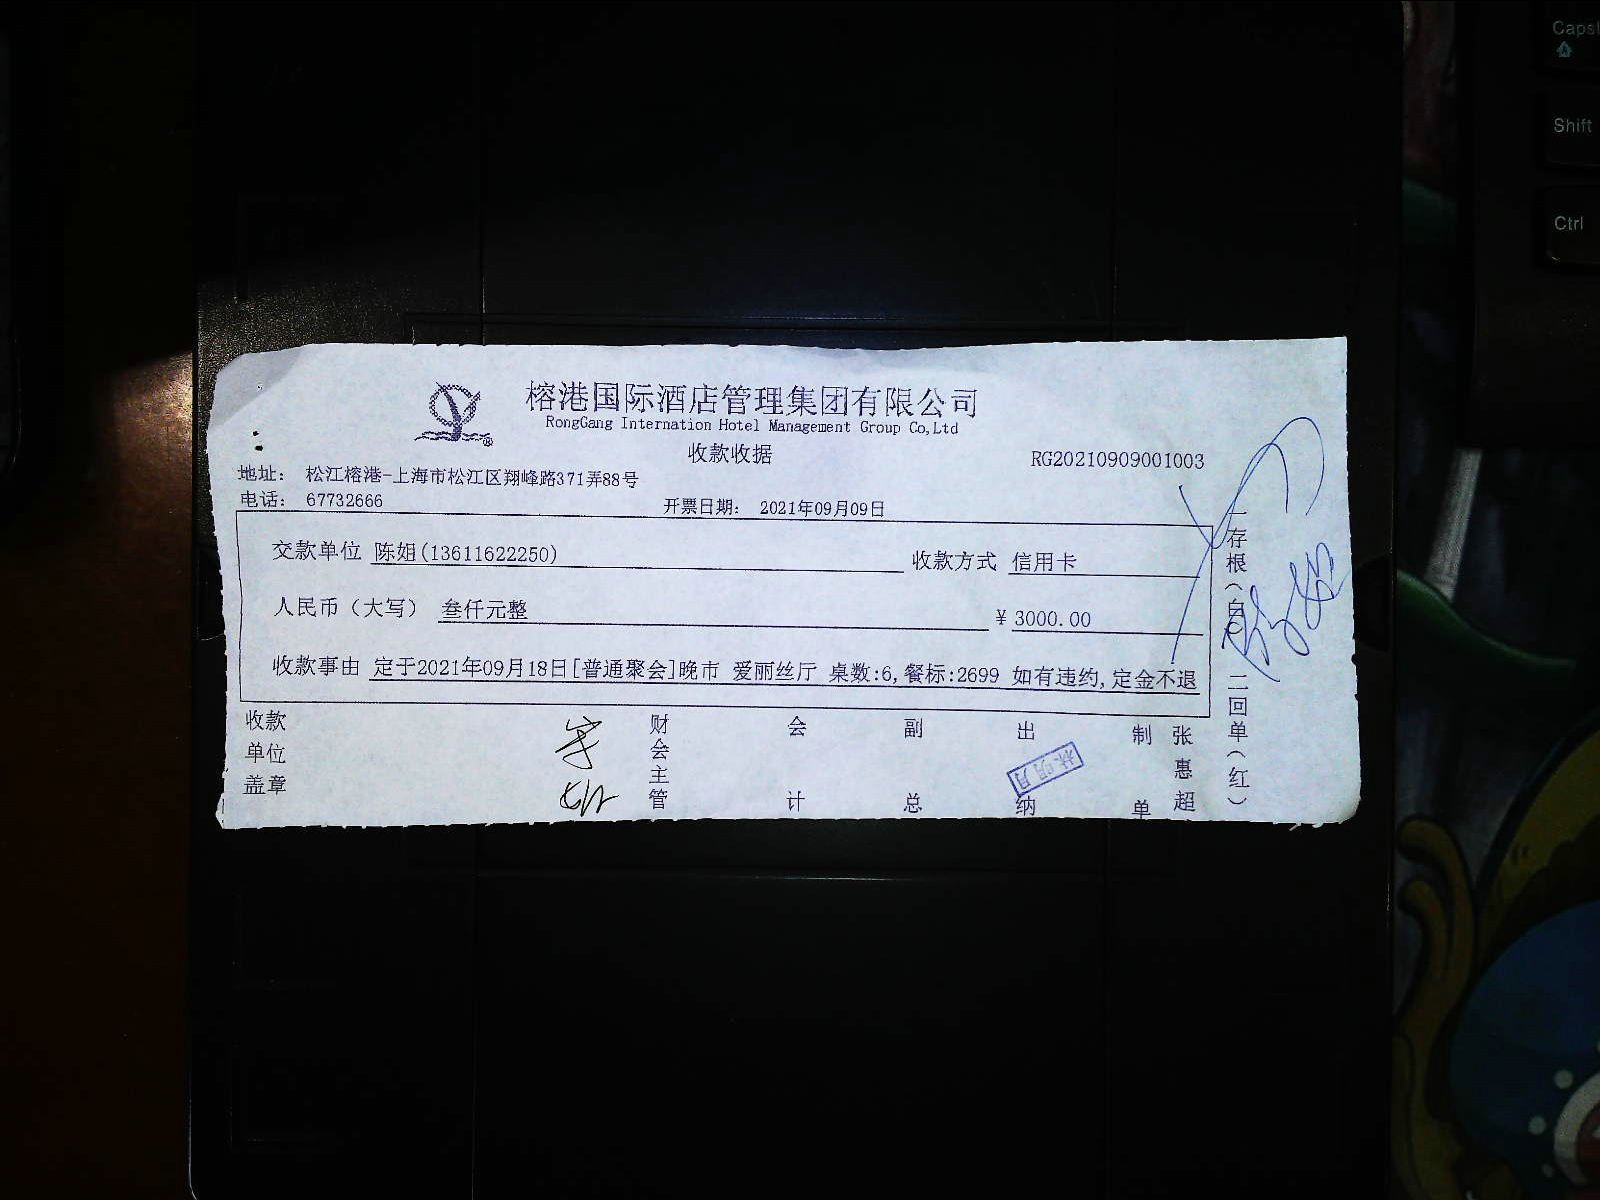 榕港国际酒店管理集团有限公司
RongGang Internation Hotel Management Group Co,Ltd
收款收据
RG20210909001003
地址： 松江榕港-上海市松江区翔峰路371弄88号
电话： 67732666
开票日期： 2021年09月09日
交款单位 陈娟(13611622250)
收款方式 信用卡
人民币（大写） 叁仟元整
¥ 3000.00
收款事由 定于2021年09月18日[普通聚会]晚市 爱丽丝厅 桌数:6,餐标:2699 如有违约,定金不退
收款单位盖章
财会主管
会计
副总
出纳
林明月
制单
张惠超
一存根（白） 二回单（红）
Caps
Shift
Ctrl